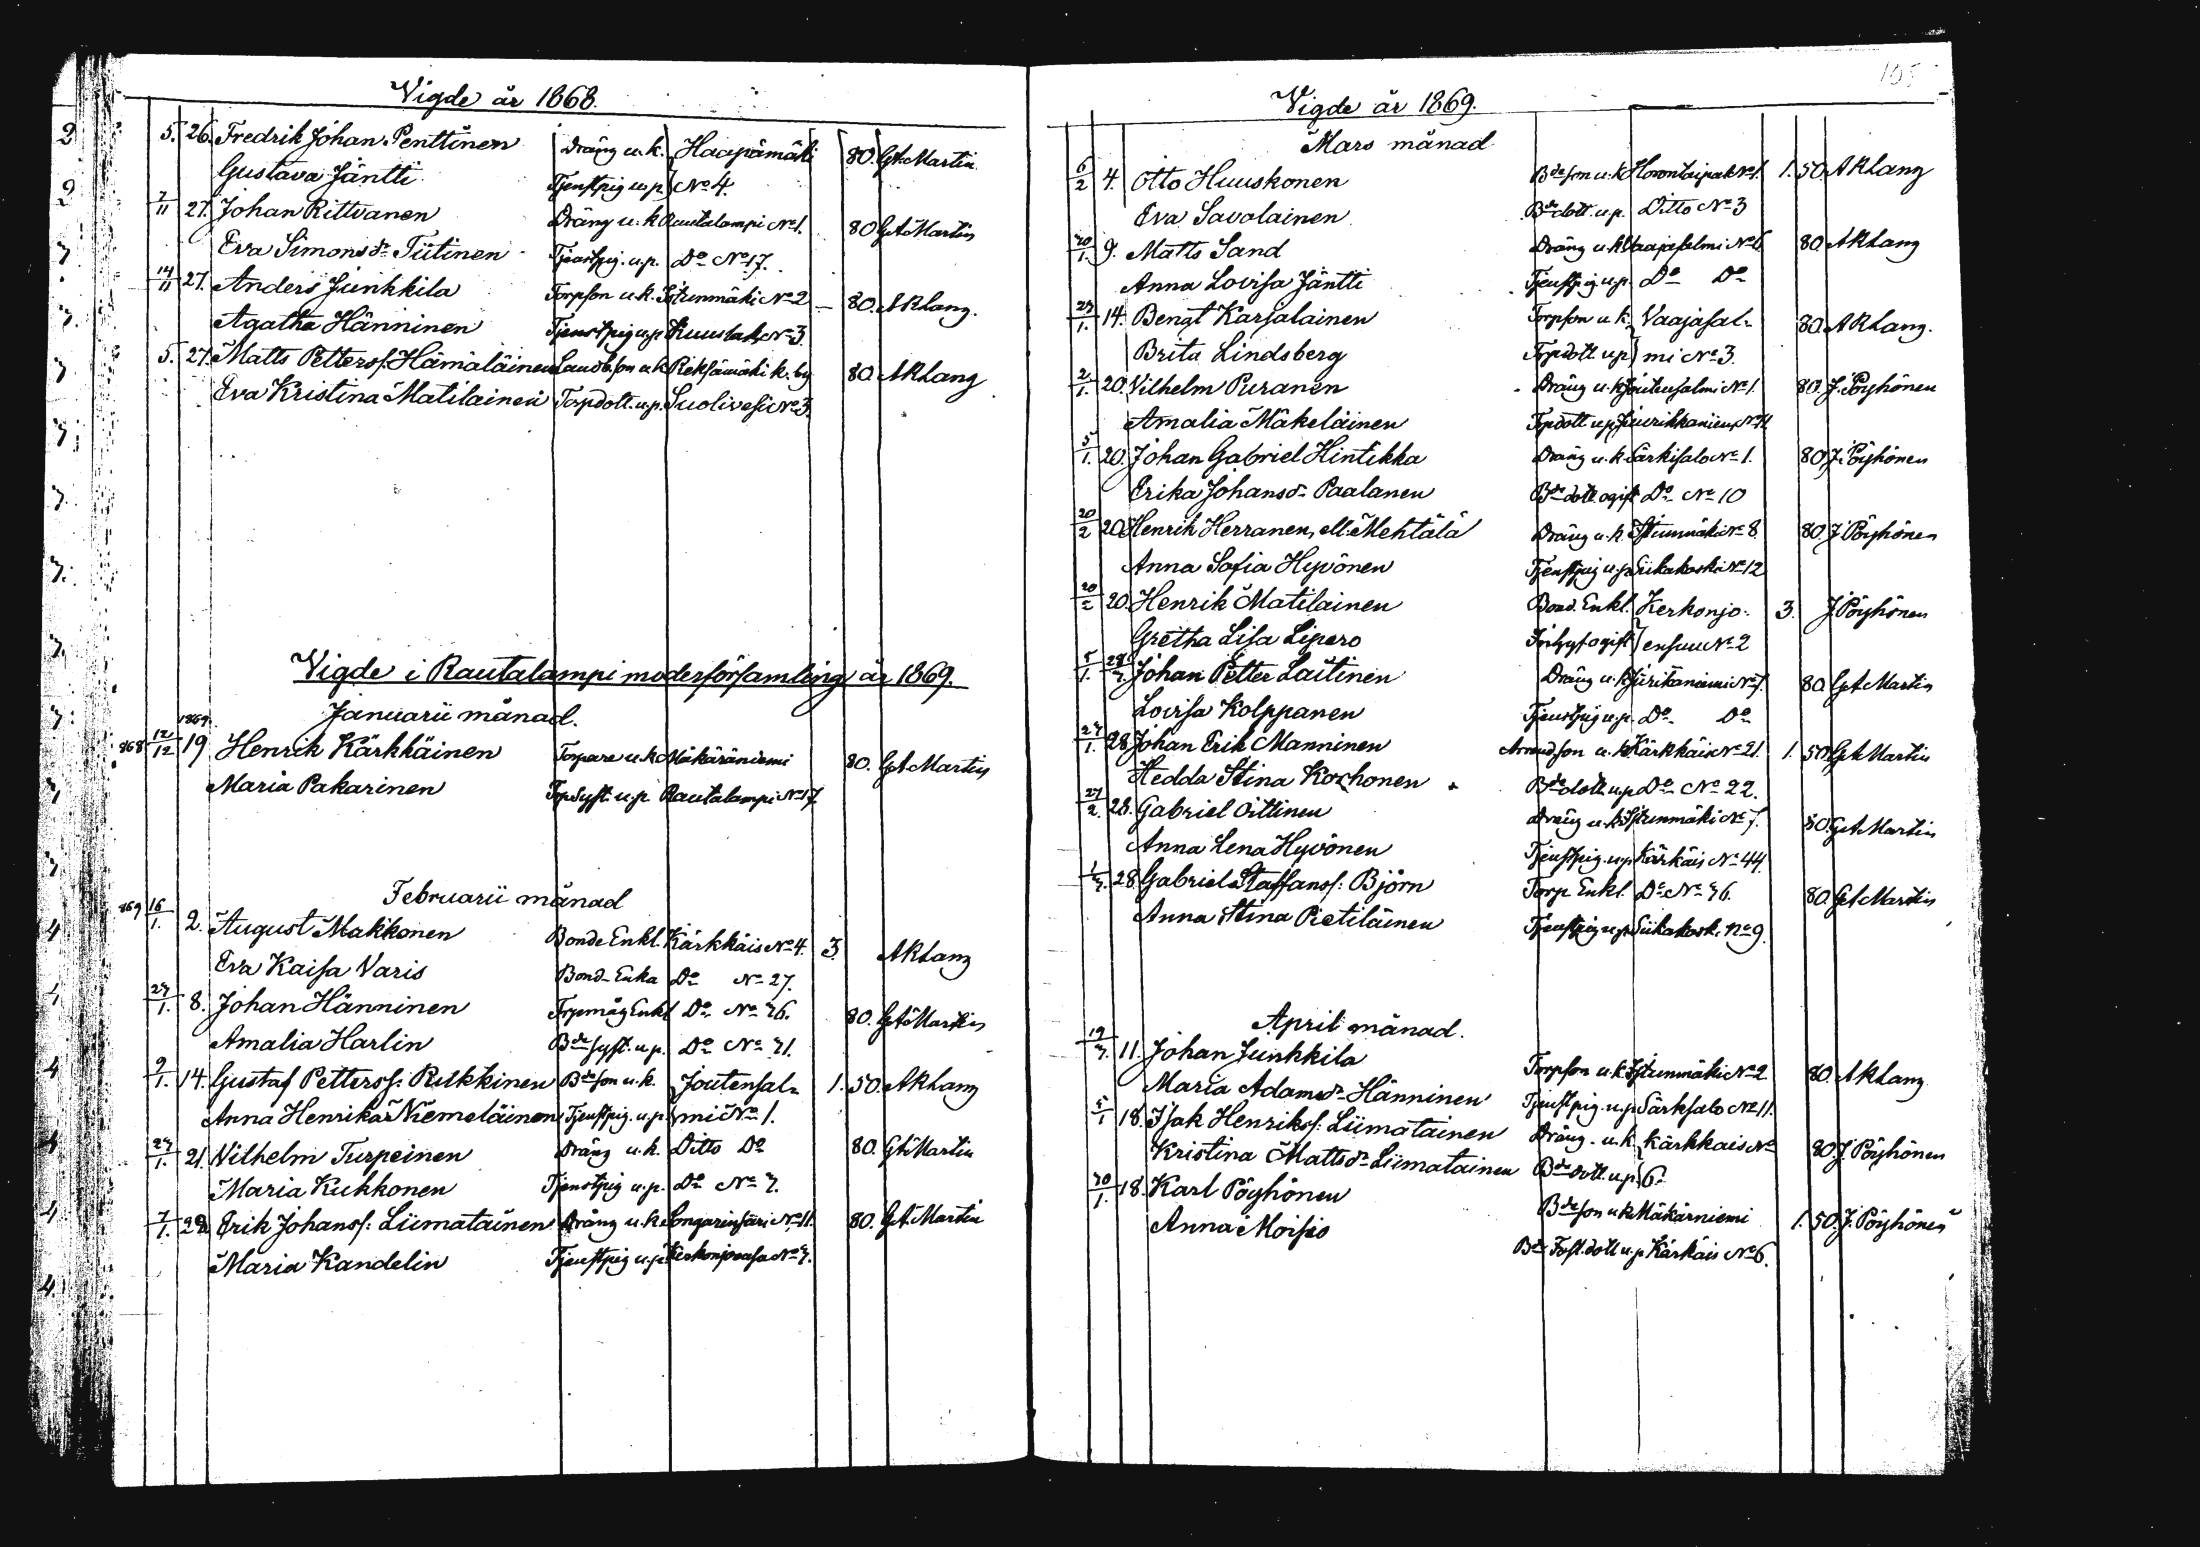 Vigde år 1868.
5. 26. Fredrik Johan Penttinen Dräng u.k. Haapamäki 80. Gt. Martin
Gustava Jäntti Tjenstpig u.p. No 4.
7/11 27. Johan Rittvanen Dräng u.k. Rautalampi No 1. 80 GA Martin
Eva Simonsdr Tiitinen Tjenstpig. u.p. Do No 17.
14/11 27. Anders Junkkila Torpson u.k. Istunmäki No 2 80. AKLang.
Agatha Hänninen Tjenstpig u.p. No 3.
5. 27. Matts Petterss. Hämäläinen Landb.son u.k. Pieksämäki k. by 80 AKLang
Eva Kristina Matilainen Torpdott. u.p. Suolivesi No 3.
Vigde i Rautalampi moderförsamling år 1869.
Januarii månad.
1869.
868 12/12 19 Henrik Kärkkäinen Torpare u.k. Mäkäräniemi 80. GA Martin
Maria Pakarinen Torpsyst. u.p. Rautalampi No 17
Februarii månad
869 16/1. 2. August Makkonen Bonde Enkl. Kärkkäis No 4. 3. AKLang
Eva Kaisa Varis Bond-Enka Do No 27.
27/1. 8. Johan Hänninen Torpmåg Enkl Do No 36. 80. GA Martin
Amalia Harlin Bde syst. u.p. Do No 31.
9/1. 14. Gustaf Petterss: Rutkkinen Bde son u.k. Joutensal= 1. 50. AKLang
Anna Henrika Niemeläinen Tjenstpig. u.p. mi No 1.
27/1. 21. Vilhelm Turpeinen Dräng u.k. Ditto Do 80. GA Martin
Maria Kukkonen Tjenstpig u.p. Do No 3.
7/1. 22 Erik Johanss: Liimatainen Dräng u.k. Kongarinsari No 11. 80. GA Martin
Maria Kandelin Tjenstpig u.p. Kerkonjoensu No 3.
105
Vigde år 1869.
Mars månad
6/2 4. Otto Huuskonen Bde son u.k. Horontaipal No 1. 1. 50. AKLang
Eva Savolainen Bde dott. u.p. Ditto No 3
30/1. 9. Matts Sand Dräng u.k. Vaajasalmi No 6 80 AKLang
Anna Lovisa Jäntti Tjenstpig u.p. Do Do
23/1. 14. Bengt Karjalainen Torpson u.k. Vaajasal= 80 AKLang.
Brita Lindsberg Torpdott u.p. mi No 3.
2/1. 20. Vilhelm Puranen Dräng u.k. Joutensalmi No 1. 80. J. Pöyhönen
Amalia Mäkeläinen Torpdott u.p.
5/1. 20. Johan Gabriel Hintikka Dräng u.k. Särkisalo No 1. 80. J. Pöyhönen
Erika Johansdr Paalanen Bde dott ogift Do No 10
20/2 20. Henrik Herranen, ell. Mehtälä Dräng u.k. Istunmäki No 8. 80. J Pöyhönen
Anna Sofia Hyvönen Tjenstpig u.p. Siikakoski No 12
20/2 20. Henrik Matilainen Bond. Enkl. Kerkonjo= 3. J Pöyhönen
Gretha Lisa Lipero ogift ensuu No 2
5/1. 28/3. Johan Petter Laitinen Dräng u.k. 80 GA Martin
Lovisa Kolppanen Tjenstpig u.p. Do Do
27/1. 28. Johan Erik Manninen Arrendson u.k. Kärkkäis No 21. 1. 50. GA Martin
Hedda Stina Korhonen Bde dott. u.p. Do No 22.
27/2. 28. Gabriel Oittinen Dräng u.k. Istunmäki No 7. 80. GA Martin
Anna Lena Hyvönen Tjenstpig. u.p. Kärkäis No 44.
1/3. 28. Gabriel Staffanss: Björn Torp Enkl. Do No 36. 80. GA Martin
Anna Stina Pietiläinen Tjenstpig u.p. Siikakosk. No 9.
April månad.
19/3. 11. Johan Junkkila Torpson u.k. Istunmäki No 2 80. AKLang
Maria Adamsdr Hänninen Tjenstpig. u.p. Särksalo No 11.
5/1 18. Isak Henrikss: Liimatainen Dräng. u.k. Kärkkais No 80. J. Pöyhönen
Kristina Mattsdr Liimatainen Bde dott. u.p. 6.
30/1. 18. Karl Pöyhönen Bde son u.k. Mäkärniemi 1. 50. J. Pöyhönen
Anna Moisio Bde Fost. dott u.p. Kärkäis No 6.